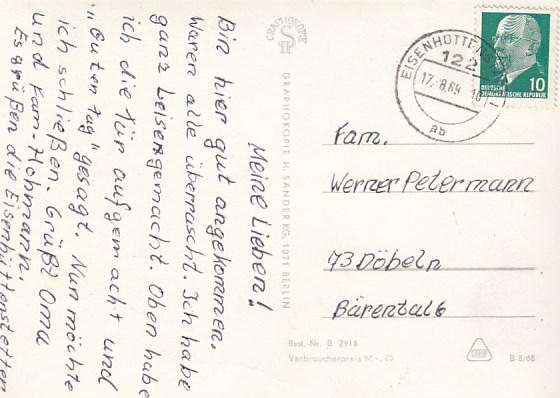 Meine Lieben!
Bin hier gut angekommen.
Waren alle überrascht. Ich habe
ganz leisengemacht. Oben habe
ich die Tür aufgemacht und
„Guten Tag" gesagt. Nun möchte
ich schließen. Grüßt Oma
und Fam. Hohmann.
Es grüßen die Eisenhüttenstetter
GRAPHOKOPIE
GRAPHOKOPIE H. SANDER KG, 1071 BERLIN
EISENHÜTTENS
122
17.-8.69
ab
DEUTSCHE
DEMOKRATISCHE REPUBLIK
10
Fam.
Werner Petermann
73 Döbeln
Bärental 6
Best.-Nr. B 2916
Verbraucherpreis M -,25
B 8/68